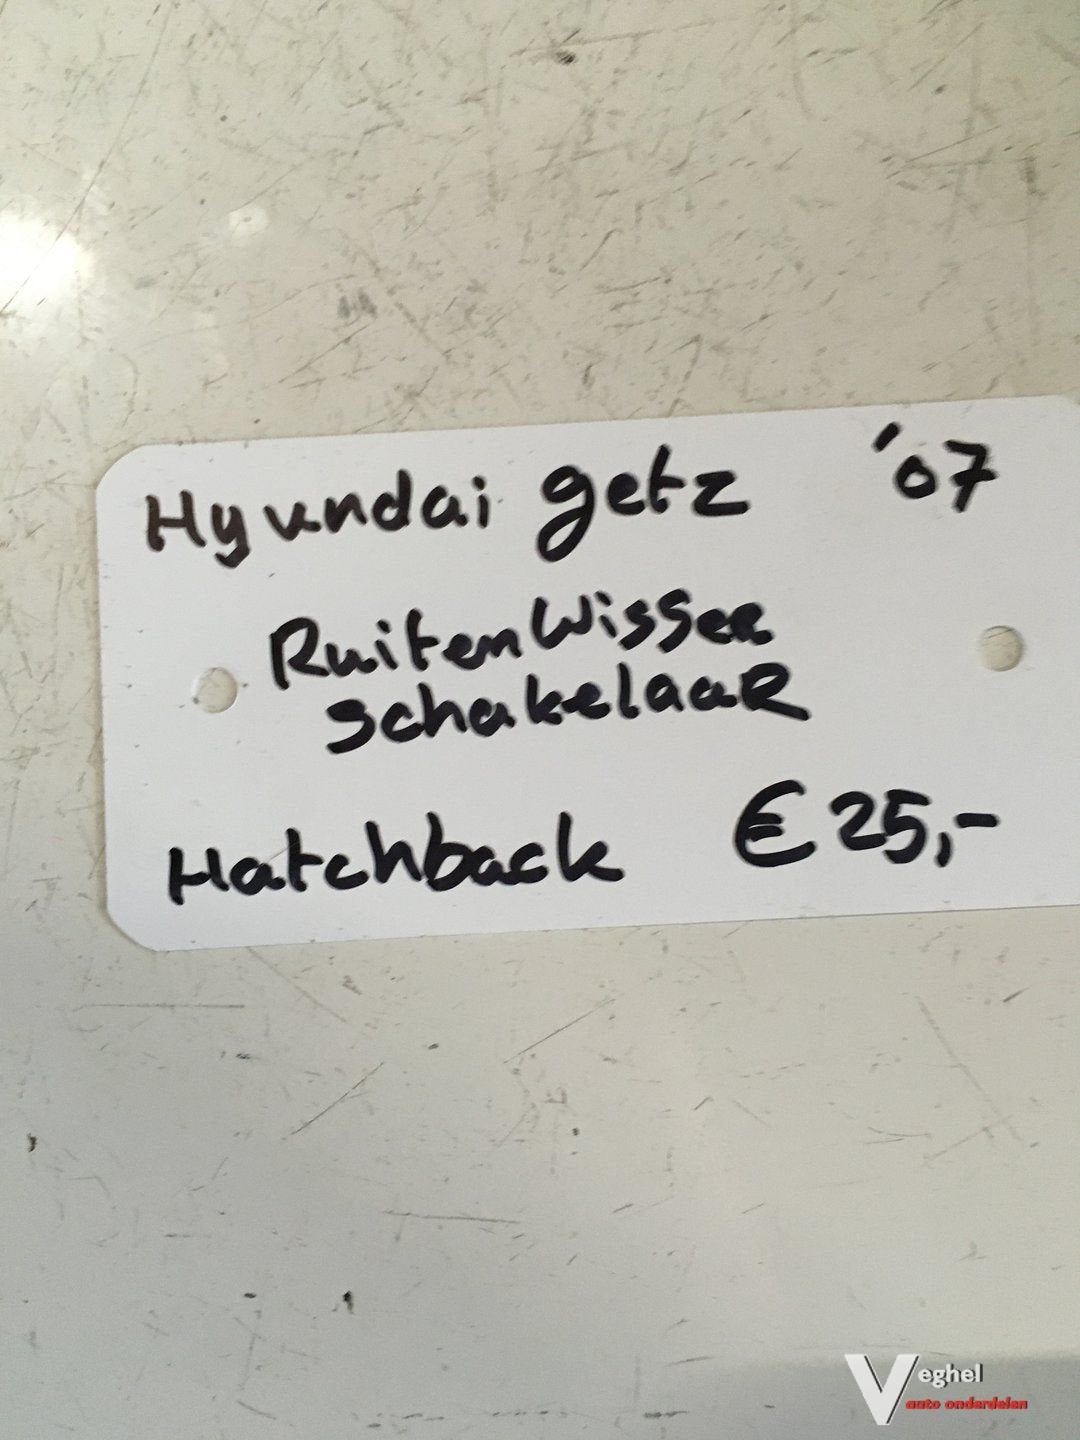 Hyundai getz '07
Ruitenwisser
schakelaar
Hatchback €25,-
Veghel
auto onderdelen